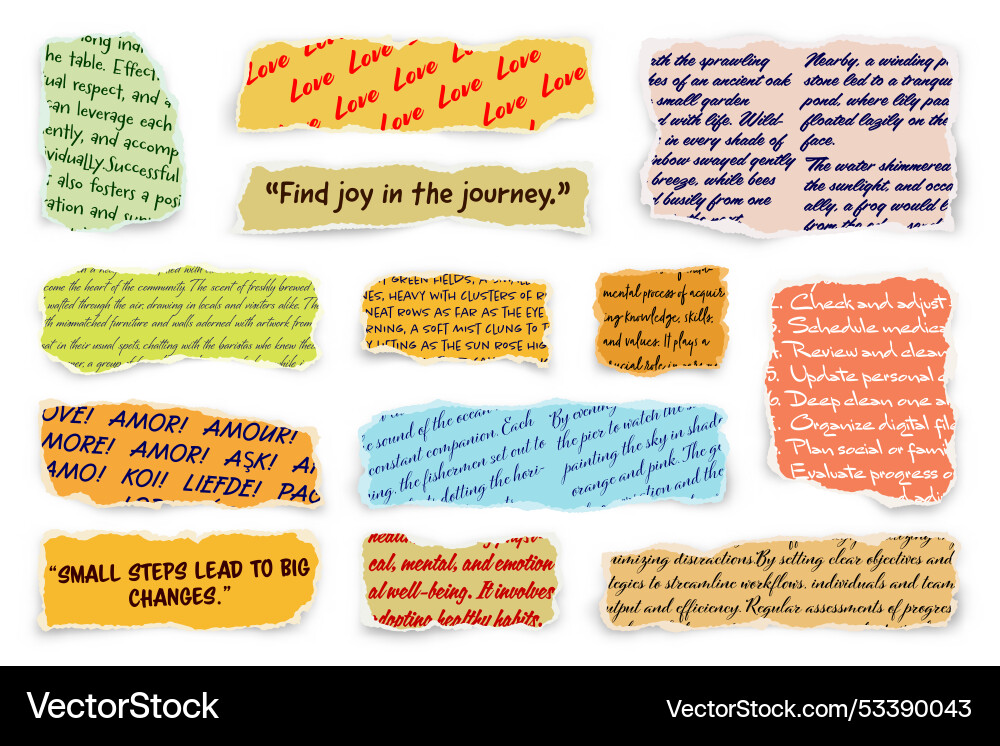 long
he table. Effect
ual respect, and a
an leverage each
ently, and accomp
vidually.Successful
also fosters a posi
ation and
Love Love Love Love
Love Love Love Love Love
Love Love Love Love Love
Love Love Love
“Find joy in the journey.”
ath the sprawling
hes of an ancient oak
small garden
d with life. Wild-
in every shade of
inbow swayed gently
breeze, while bees
d busily from one
Nearby, a winding p
stone led to a tranqu
pond, where lily pad
floated lazily on the
face.
The water shimmered
the sunlight, and occa
ally, a frog would l
from the
ome the heart of the community. The scent of freshly brewed
wafted through the air, drawing in locals and visitors alike. Th
th mismatched furniture and walls adorned with artwork from
at in their usual spots, chatting with the baristas who knew thei
er, a group of
GREEN FIELDS,
NES, HEAVY WITH CLUSTERS OF R
NEAT ROWS AS FAR AS THE EYE
RNING, A SOFT MIST CLUNG TO T
LIFTING AS THE SUN ROSE HIG
mental process of acquir
ing knowledge, skills,
and values. It plays a
social role in
Check and adjust
Schedule medica
Review and clean
5. Update personal
6. Deep clean one a
Organize digital file
Plan social or famil
Evaluate progress o
OVE! AMOR! AMOUR!
MORE! AMOR! AŞK! A
AMO! KOI! LIEFDE! PAG
e sound of the ocean
constant companion. Each
ing, the fishermen set out to
dotting the hori-
By evening
the pier to watch the
painting the sky in shad
orange and pink. The ge
and the
“SMALL STEPS LEAD TO BIG
CHANGES.”
cal, mental, and emotion
al well-being. It involves
adopting healthy habits,
imizing distractions.By setting clear objectives and
tegies to streamline workflows, individuals and team
utput and efficiency. Regular assessments of progres
VectorStock
VectorStock.com/53390043